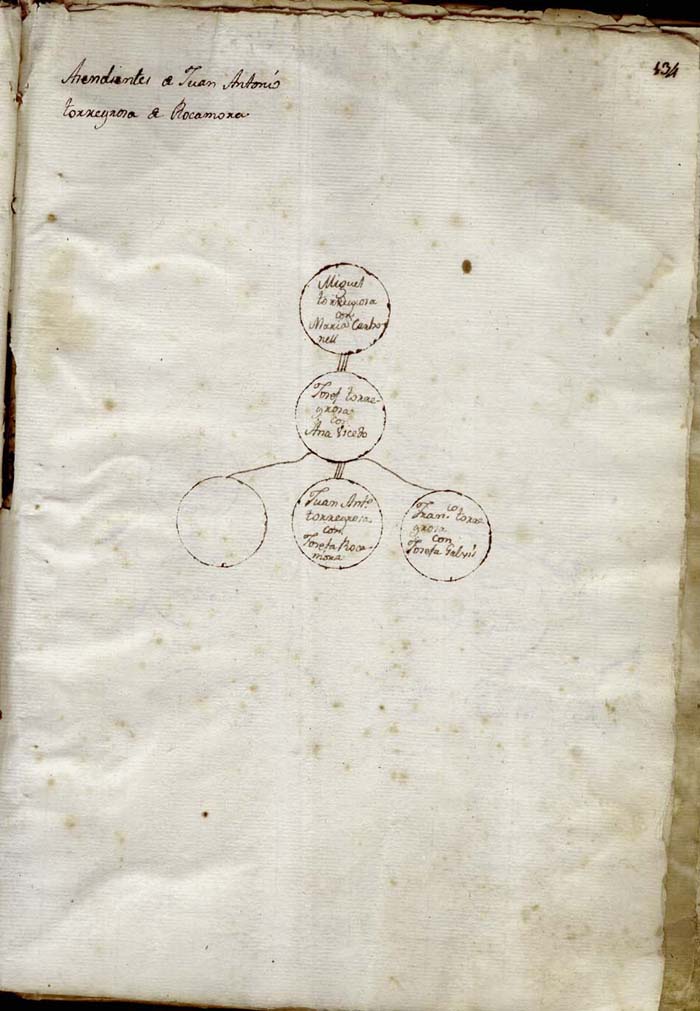 Asendientes de Juan Antonio
torregrosa de Rocamora
434
Miguel
torregrosa
con
Maria Carbo
nell
Josef torre-
grosa
con
Ana Viceto
Juan Antº
torregrosa
con
Josefa Roca-
mora
Franco torre
grosa
con
Josefa Galvis